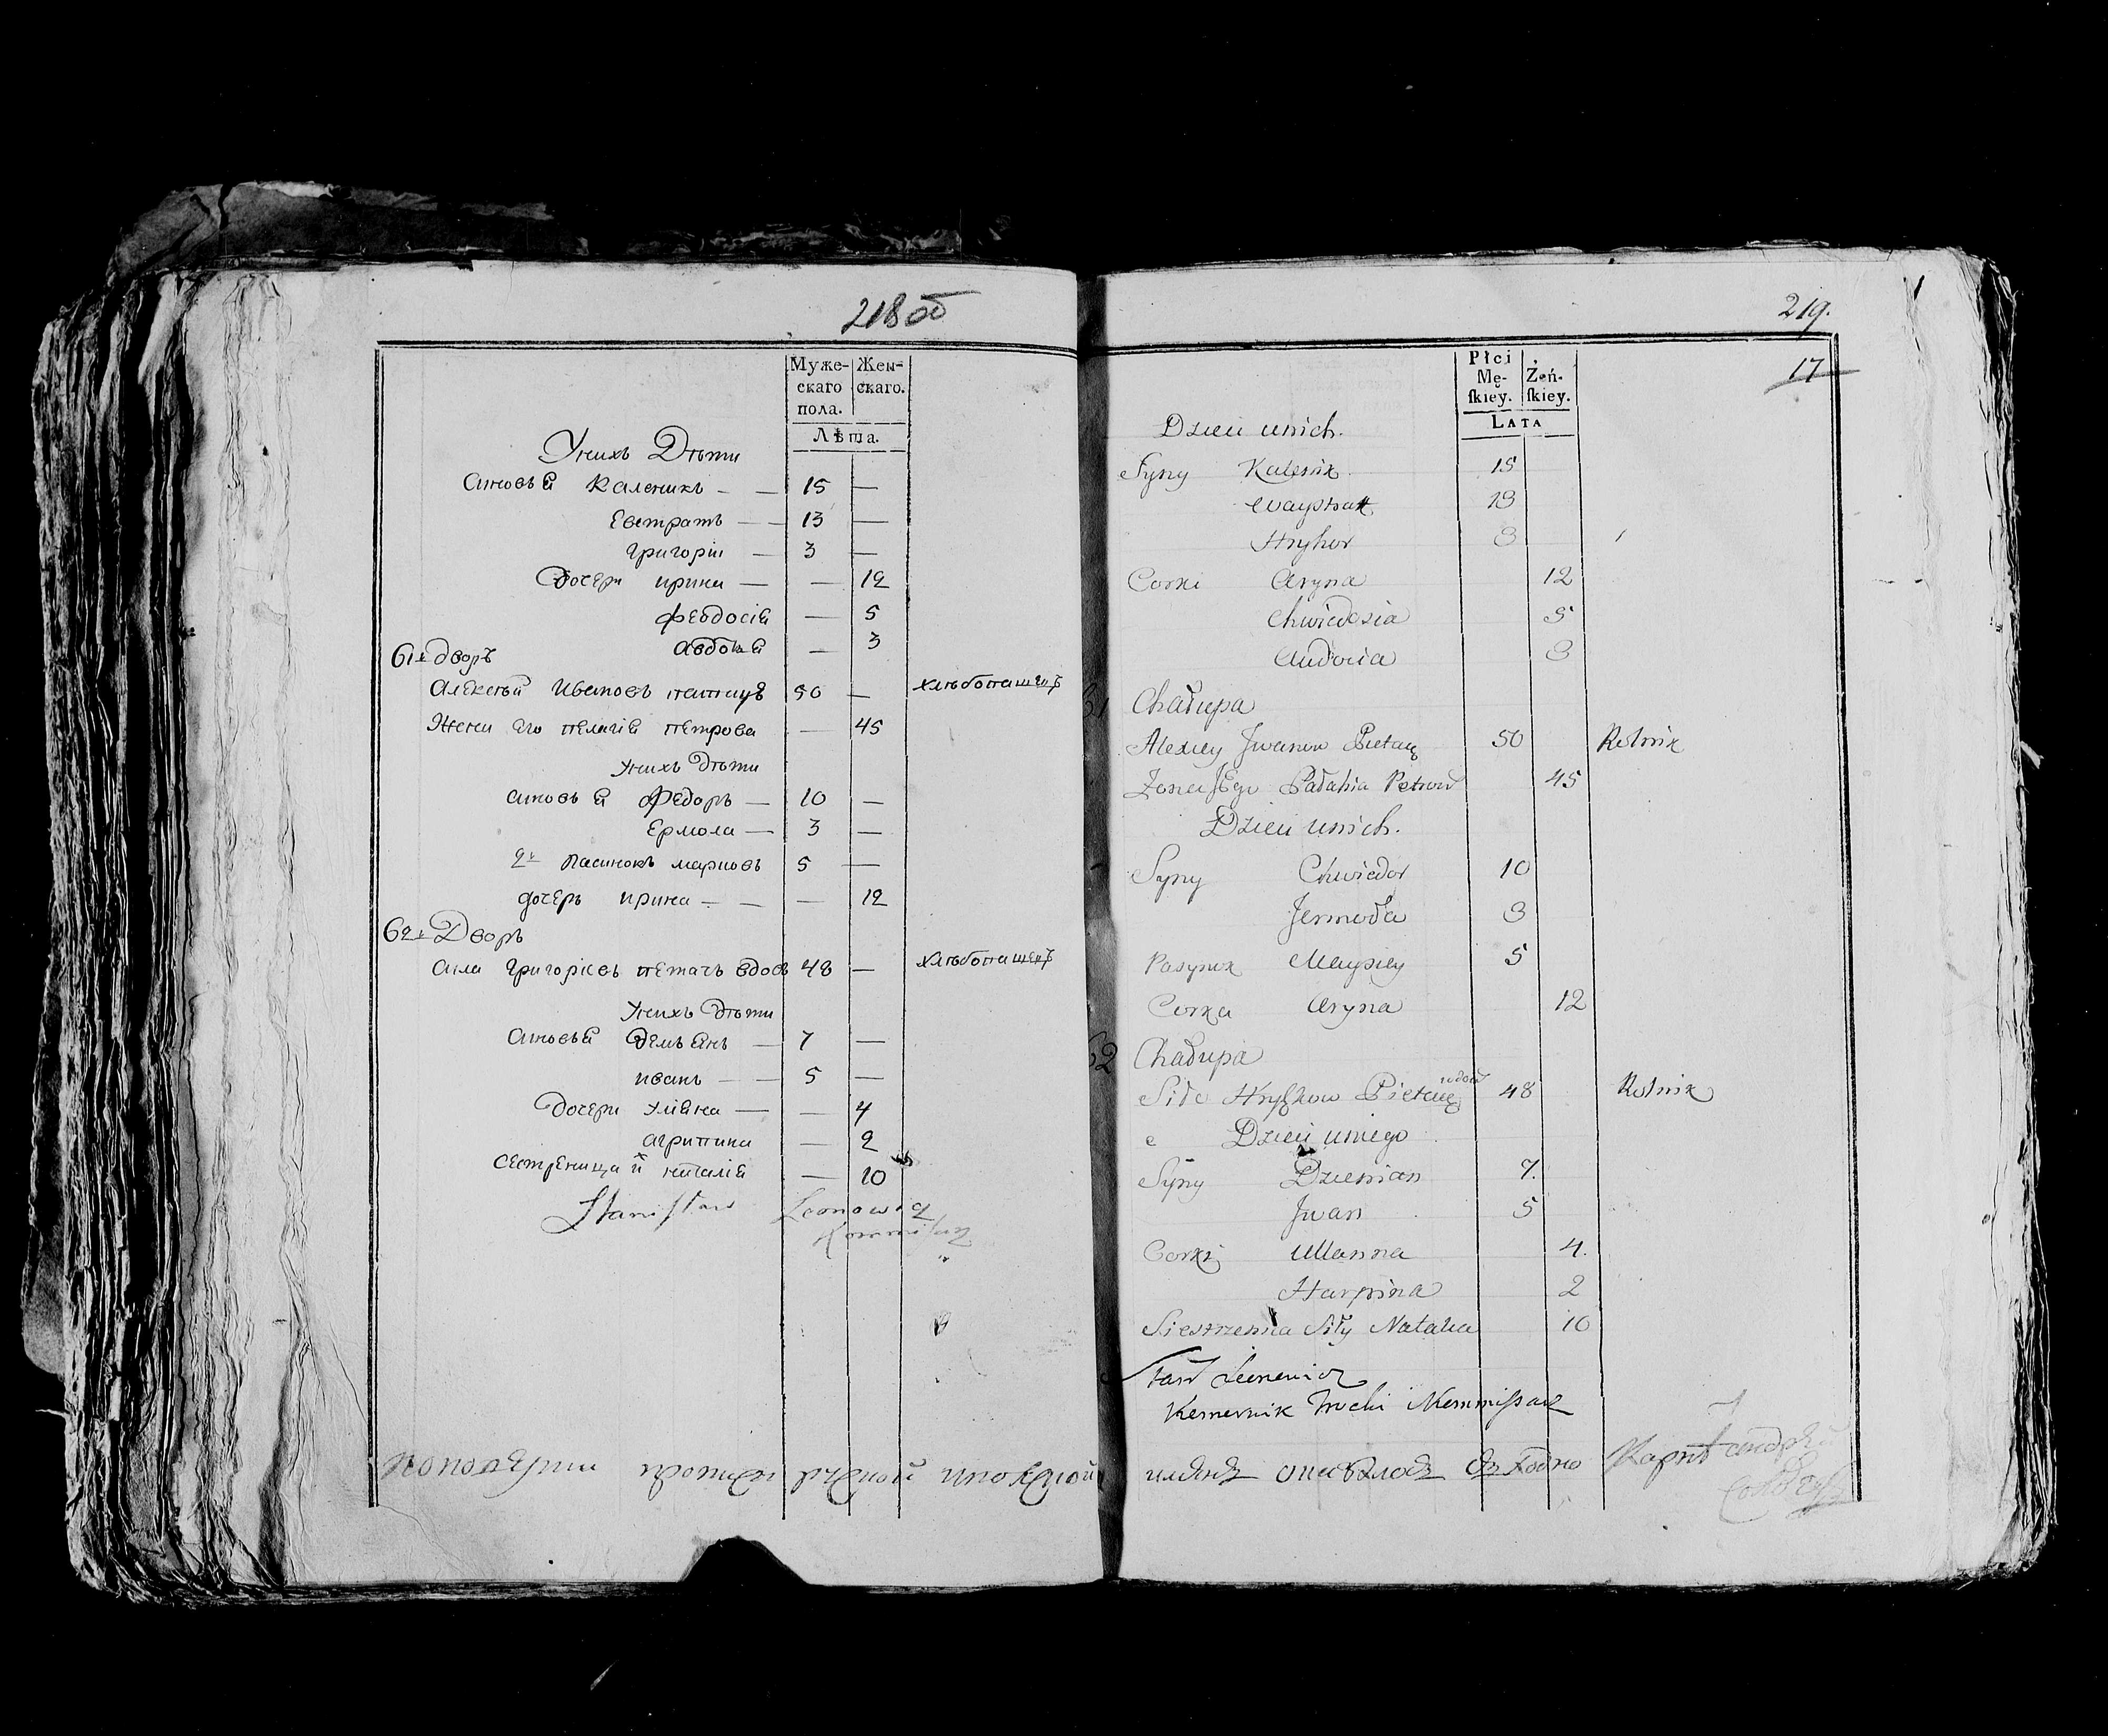 218 об
Муже-
скаго
пола.
Жен-
скаго.
Лѣта.
У нихъ Дѣти
Синовья Каленикъ 15
Евстратъ 13
Григорiи 3
Дочери ирина 12
Феодосiя 5
Авдотя 3
61й дворъ
Алексѣй Ивановъ 50 хлѣбопашецъ
Жена Его пелагiя петрова 45
У нихъ Дѣти
Синовья Федоръ 10
Ермола 3
Пасинокъ 5
дочеръ ирина 12
62й Дворъ
Сила Григорiевъ петачъ вдовъ 48 хлѣбопашецъ
У нихъ Дѣти
Синовья Демьянъ 7
иванъ 5
Дочери Улiяна 4
агрипина 2
Сестреница наталiя 10
Stanisław Leonowicz
Kommisarz
219.
17
Płci
Mę-
ſkiey.
Żeń-
ſkiey.
LATA
Dzieci unich.
Syny Kalenik 15
13
Hryhor 3
Corki Aryna 12
Chwiedosia 5
Audocia 3
61 Chałupa
Alexiey Jwanow Pietacz 50 Rolnik
Żona JEgo Pałahia Petrow 45
Dzieci unich.
Syny Chwiedor 10
Jermoła 3
Pasynek 5
Corka Aryna 12
62 Chałupa
Siła Hryhow Pietacz wdow 48 Rolnik
Dzieci uniego
Syny Dziemian 7.
Jwan 5
Corki Ullanna 4.
Harpina 2
Siestrzenica Siły Natalia 10
Leonowicz
Kommissarz